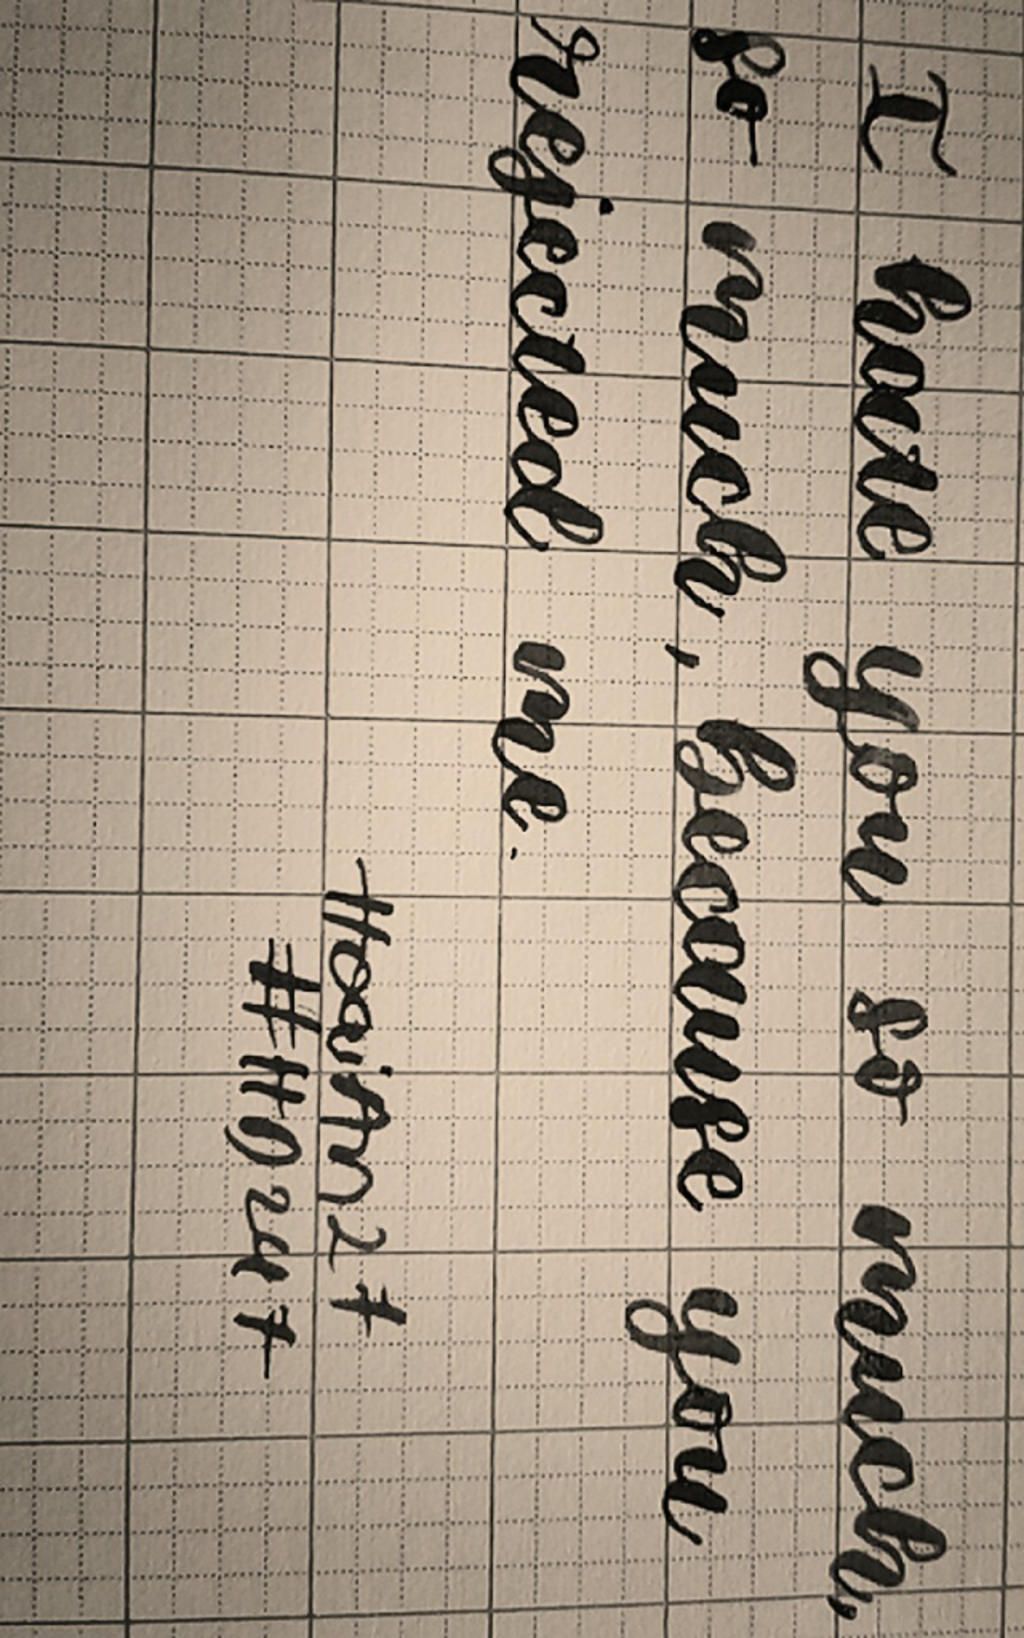 I hate you so much,
so much, because you
rejected me.
HoaiAn27
#HA247